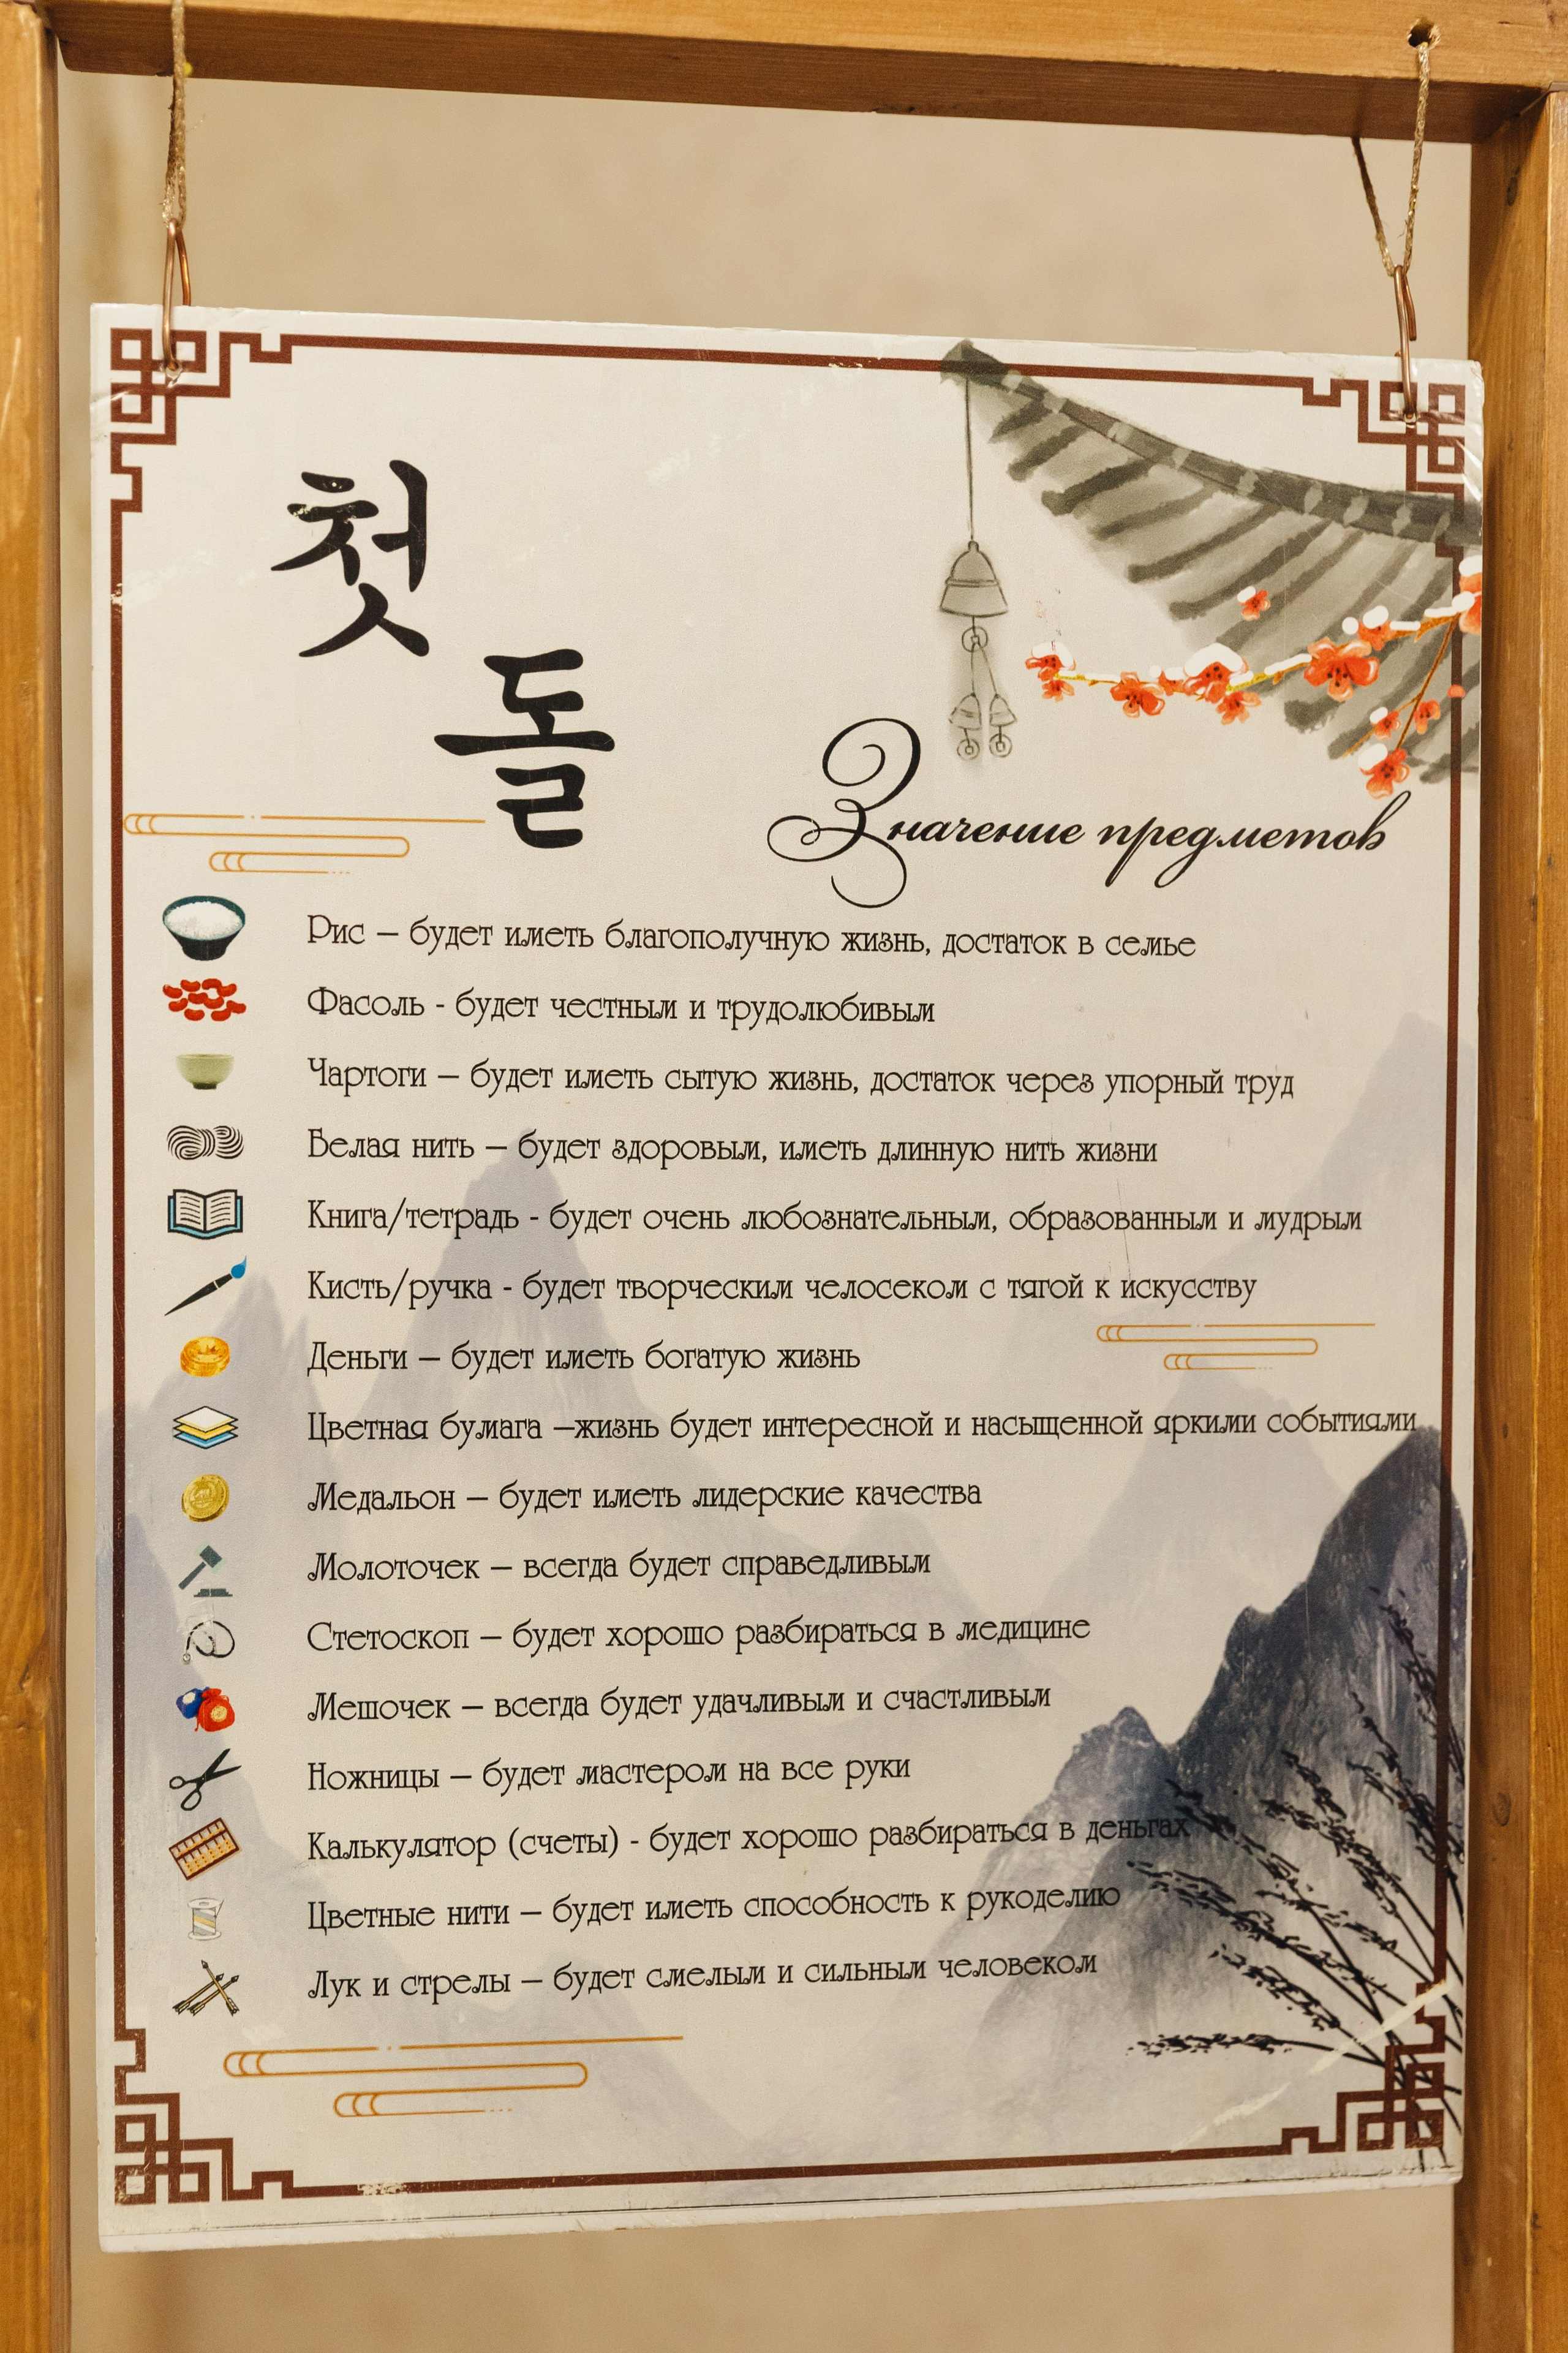 첫
돌
Значение предметов
Рис – будет иметь благополучную жизнь, достаток в семье
Фасоль - будет честным и трудолюбивым
Чартоги – будет иметь сытую жизнь, достаток через упорный труд
Белая нить – будет здоровым, иметь длинную нить жизни
Книга/тетрадь - будет очень любознательным, образованным и мудрым
Кисть/ручка - будет творческим челосеком с тягой к искусству
Деньги – будет иметь богатую жизнь
Цветная бумага –жизнь будет интересной и насыщенной яркими событиями
Медальон – будет иметь лидерские качества
Молоточек – всегда будет справедливым
Стетоскоп – будет хорошо разбираться в медицине
Мешочек – всегда будет удачливым и счастливым
Ножницы – будет мастером на все руки
Калькулятор (счеты) - будет хорошо разбираться в деньгах
Цветные нити – будет иметь способность к рукоделию
Лук и стрелы – будет смелым и сильным человеком